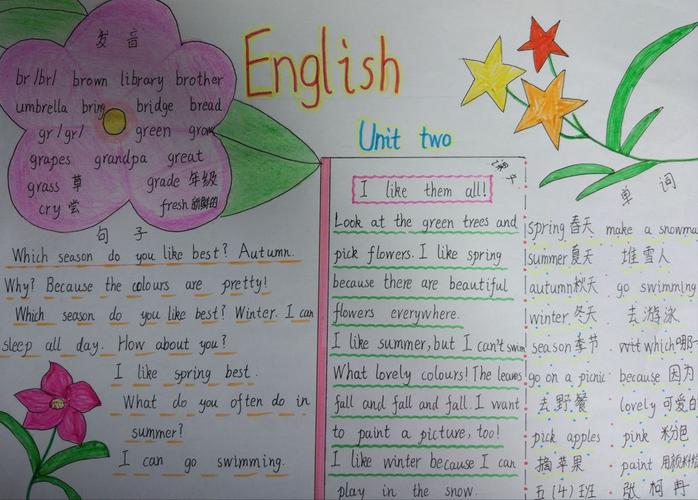 English
Unit two
发音
br /br/ brown library brother
umbrella bring bridge bread
gr /gr/ green grow
grapes grandpa great
grass 草 grade 年级
cry 尝 fresh 新鲜的
句子
Which season do you like best? Autumn.
Why? Because the colours are pretty!
Which season do you like best? Winter. I can
sleep all day. How about you?
I like spring best.
What do you often do in
summer?
I can go swimming.
课文
I like them all!
Look at the green trees and
pick flowers. I like spring
because there are beautiful
flowers everywhere.
I like summer, but I can't swim
What lovely colours! The leaves
fall and fall and fall. I want
to paint a picture, too!
I like winter because I can
play in the snow.
单词
spring 春天 make a snowma
summer 夏天 堆雪人
autumn 秋天 go swimming
winter 冬天 去游泳
season 季节 which 哪一
go on a picnic because 因为
去野餐 lovely 可爱的
pick apples pink 粉
摘苹果 paint
五(4)班 张柯冉